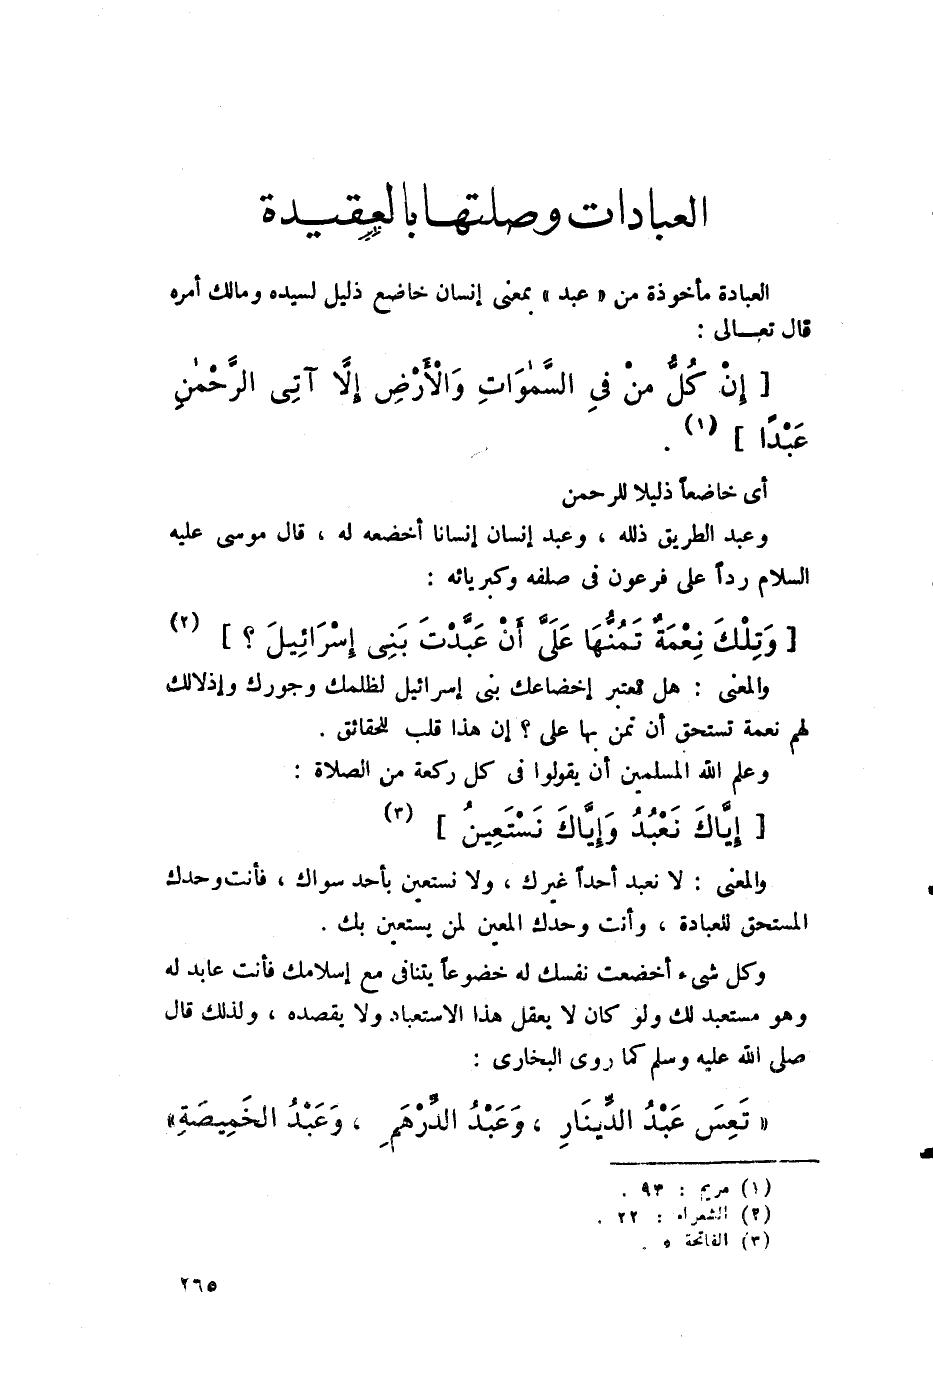 العبادات وصلتها بالعقيدة
العبادة مأخوذة من « عبد » بمعنى إنسان خاضع ذليل لسيده ومالك أمره
قال تعالى :
[ إِنْ كُلُّ مَنْ فِي السَّمٰوَاتِ وَالْأَرْضِ إِلَّا آتِى الرَّحْمٰنِ
عَبْدًا ] (١) .
أى خاضعاً ذليلا للرحمن
وعبد الطريق ذلله ، وعبد إنسان إنسانا أخضعه له ، قال موسى عليه
السلام رداً على فرعون فى صلفه وكبريائه :
[ وَتِلْكَ نِعْمَةٌ تَمُنُّهَا عَلَيَّ أَنْ عَبَّدْتَ بَنِى إِسْرَائِيلَ ؟ ] (٢)
والمعنى : هل تعتبر إخضاعك بنى إسرائيل لظلمك وجورك وإذلالك
لهم نعمة تستحق أن تمن بها على ؟ إن هذا قلب للحقائق .
وعلم الله المسلمين أن يقولوا فى كل ركعة من الصلاة :
[ إِيَّاكَ نَعْبُدُ وَإِيَّاكَ نَسْتَعِينُ ] (٣)
والمعنى : لا نعبد أحداً غيرك ، ولا نستعين بأحد سواك ، فأنت وحدك
المستحق للعبادة ، وأنت وحدك المعين لمن يستعين بك .
وكل شىء أخضعت نفسك له خضوعاً يتنافى مع إسلامك فأنت عابد له
وهو مستعبد لك ولو كان لا يعقل هذا الاستعباد ولا يقصده ، ولذلك قال
صلى الله عليه وسلم كما روى البخارى :
« تَعِسَ عَبْدُ الدِّينَارِ ، وَعَبْدُ الدِّرْهَمِ ، وَعَبْدُ الخَمِيصَةِ»
(١) مريم : ٩٣ .
(٢) الشعراء : ٢٢ .
(٣) الفاتحة ٥ .
٢٦٥